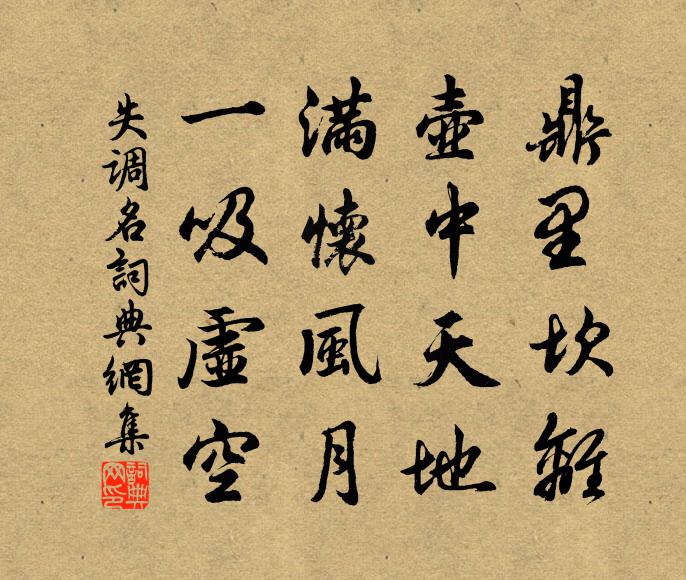 鼎里坎離
壺中天地
滿懷風月
一吸虛空
失調名詞典網集
詞典網印